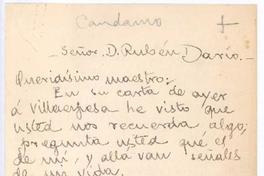 Candamo
Señor. D. Rubén Darío.-
Queridísimo maestro:
En su carta de ayer
á Villaespesa he visto que
usted nos recuerda algo;
pregunta usted qué él
de mí, y allá van señales
de mi vida.